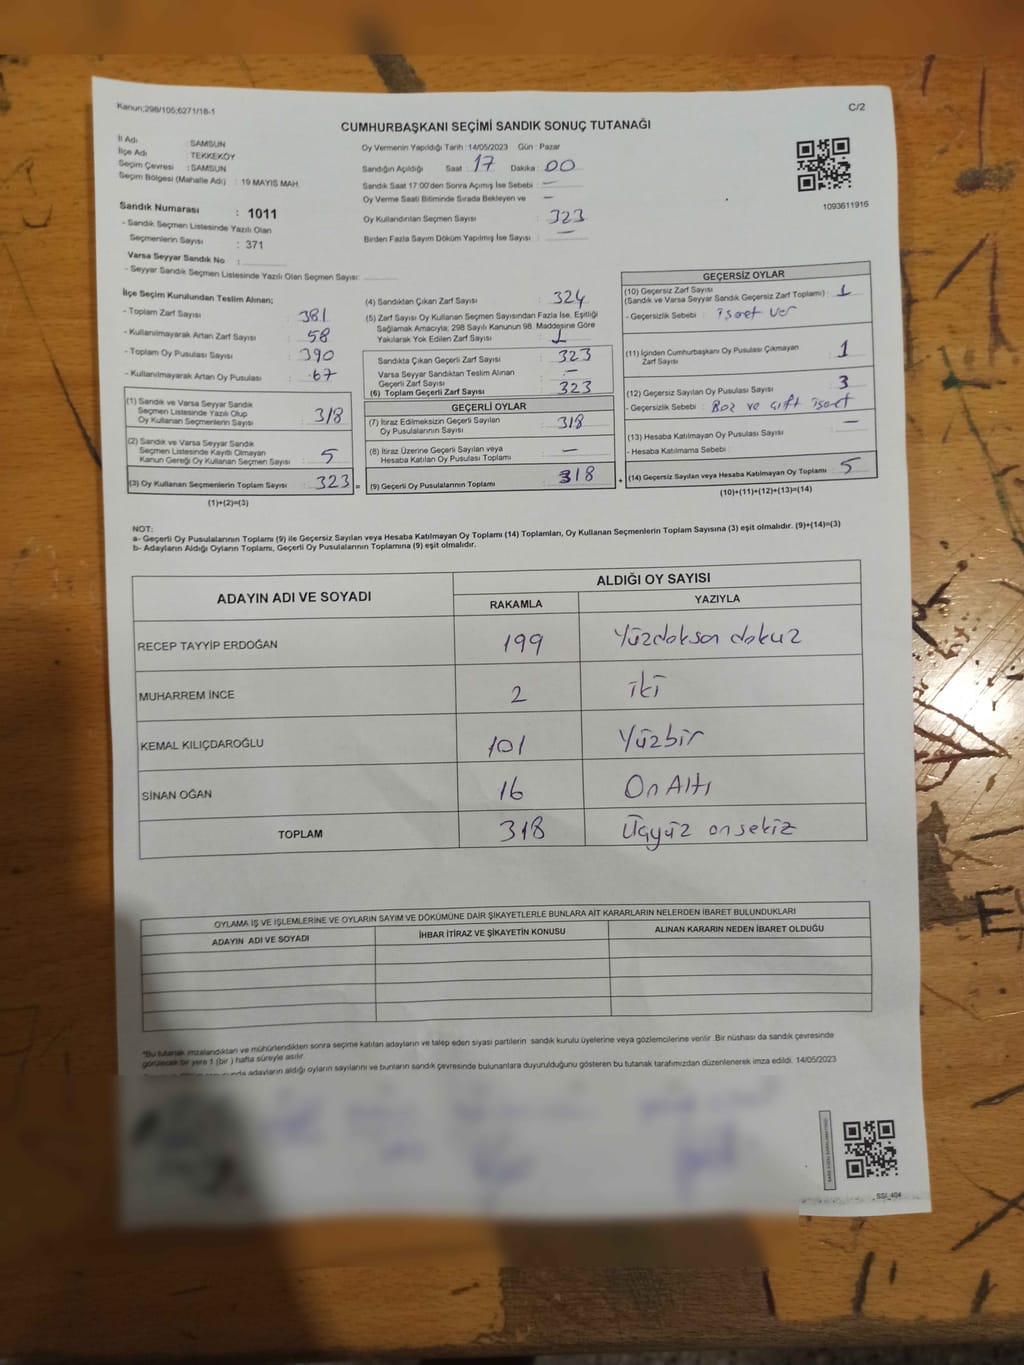 Kanun;298/105;6271/18-1
C/2
CUMHURBAŞKANI SEÇİMİ SANDIK SONUÇ TUTANAĞI
İl Adı : SAMSUN
İlçe Adı : TEKKEKÖY
Seçim Çevresi : SAMSUN
Seçim Bölgesi (Mahalle Adı) : 19 MAYIS MAH.
Sandık Numarası : 1011
- Sandık Seçmen Listesinde Yazılı Olan
Seçmenlerin Sayısı : 371
Varsa Seyyar Sandık No :
- Seyyar Sandık Seçmen Listesinde Yazılı Olan Seçmen Sayısı:
Oy Vermenin Yapıldığı Tarih : 14/05/2023 Gün : Pazar
Sandığın Açıldığı Saat : 17 Dakika : 00
Sandık Saat 17:00'den Sonra Açımış İse Sebebi : —
Oy Verme Saati Bitiminde Sırada Bekleyen ve —
Oy Kullandırılan Seçmen Sayısı : 323
Birden Fazla Sayım Döküm Yapılmış İse Sayısı : —
1093611916
İlçe Seçim Kurulundan Teslim Alınan;
- Toplam Zarf Sayısı : 381
- Kullanılmayarak Artan Zarf Sayısı : 58
- Toplam Oy Pusulası Sayısı : 390
- Kullanılmayarak Artan Oy Pusulası : 67
(1) Sandık ve Varsa Seyyar Sandık
Seçmen Listesinde Yazılı Olup
Oy Kullanan Seçmenlerin Sayısı : 318
(2) Sandık ve Varsa Seyyar Sandık
Seçmen Listesinde Kayıtlı Olmayan
Kanun Gereği Oy Kullanan Seçmen Sayısı : 5
(3) Oy Kullanan Seçmenlerin Toplam Sayısı : 323 =
(1)+(2)=(3)
(4) Sandıktan Çıkan Zarf Sayısı : 324
(5) Zarf Sayısı Oy Kullanan Seçmen Sayısından Fazla İse, Eşitliği
Sağlamak Amacıyla; 298 Sayılı Kanunun 98. Maddesine Göre
Yakılarak Yok Edilen Zarf Sayısı : 1
Sandıkta Çıkan Geçerli Zarf Sayısı : 323
Varsa Seyyar Sandıktan Teslim Alınan
Geçerli Zarf Sayısı : —
(6) Toplam Geçerli Zarf Sayısı : 323
GEÇERLİ OYLAR
(7) İtiraz Edilmeksizin Geçerli Sayılan
Oy Pusulalarının Sayısı : 318
(8) İtiraz Üzerine Geçerli Sayılan veya
Hesaba Katılan Oy Pusulası Toplamı : —
(9) Geçerli Oy Pusulalarının Toplamı : 318 +
GEÇERSİZ OYLAR
(10) Geçersiz Zarf Sayısı
(Sandık ve Varsa Seyyar Sandık Geçersiz Zarf Toplamı) : 1
- Geçersizlik Sebebi : işaret var
(11) İçinden Cumhurbaşkanı Oy Pusulası Çıkmayan
Zarf Sayısı : 1
(12) Geçersiz Sayılan Oy Pusulası Sayısı : 3
- Geçersizlik Sebebi : Boz ve çift işaret
(13) Hesaba Katılmayan Oy Pusulası Sayısı : —
- Hesaba Katılmama Sebebi :
(14) Geçersiz Sayılan veya Hesaba Katılmayan Oy Toplamı : 5
(10)+(11)+(12)+(13)=(14)
NOT:
a- Geçerli Oy Pusulalarının Toplamı (9) ile Geçersiz Sayılan veya Hesaba Katılmayan Oy Toplamı (14) Toplamları, Oy Kullanan Seçmenlerin Toplam Sayısına (3) eşit olmalıdır. (9)+(14)=(3)
b- Adayların Aldığı Oyların Toplamı, Geçerli Oy Pusulalarının Toplamına (9) eşit olmalıdır.
ADAYIN ADI VE SOYADI
ALDIĞI OY SAYISI
RAKAMLA YAZIYLA
RECEP TAYYİP ERDOĞAN 199 Yüzdoksan dokuz
MUHARREM İNCE 2 iki
KEMAL KILIÇDAROĞLU 101 Yüzbir
SİNAN OĞAN 16 On Altı
TOPLAM 318 Üçyüz onsekiz
OYLAMA İŞ VE İŞLEMLERİNE VE OYLARIN SAYIM VE DÖKÜMÜNE DAİR ŞİKAYETLERLE BUNLARA AİT KARARLARIN NELERDEN İBARET BULUNDUKLARI
ADAYIN ADI VE SOYADI İHBAR İTİRAZ VE ŞİKAYETİN KONUSU ALINAN KARARIN NEDEN İBARET OLDUĞU
*Bu tutanak imzalandıktan ve mühürlendikten sonra seçime katılan adayların ve talep eden siyasi partilerin sandık kurulu üyelerine veya gözlemcilerine verilir. Bir nüshası da sandık çevresinde
görülecek bir yere 1 (bir ) hafta süreyle asılır.
adayların aldığı oyların sayılarını ve bunların sandık çevresinde bulunanlara duyurulduğunu gösteren bu tutanak tarafımızdan düzenlenerek imza edildi. 14/05/2023
SSI_404
E